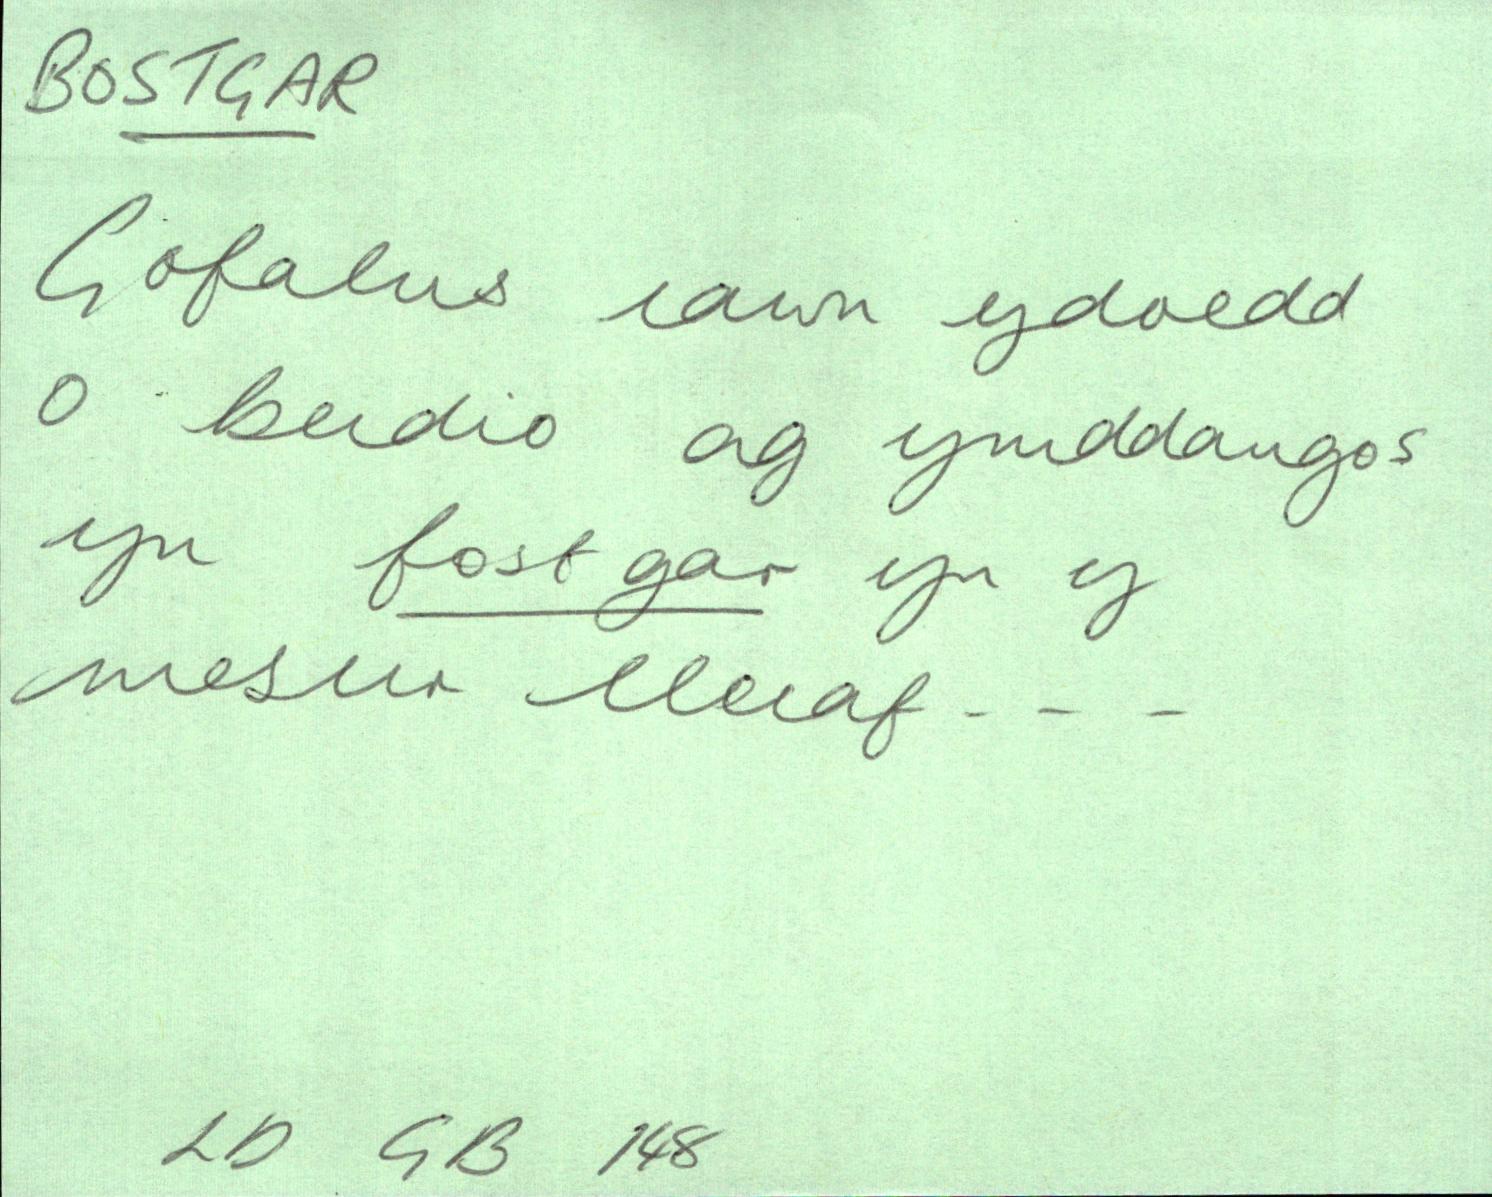 BOSTGAR
Gofalus iawn ydoedd
o beidio ag ymddangos
yn fostgar yn y
mesur lleiaf - - -
LD GB 148